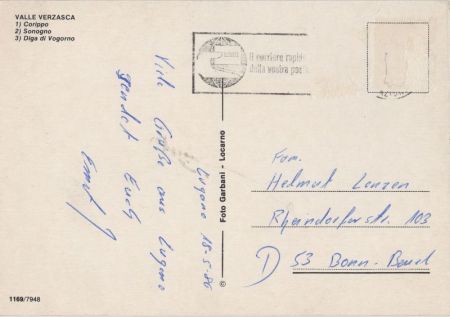 VALLE VERZASCA
1) Corippo
2) Sonogno
3) Diga di Vogorno
Il corriere rapido
della vostra posta
Lugano 18-5-86
Viele Grüße aus Lugano
sendet Euch
Foto Garbani - Locarno
©
Fam.
Helmut Lenzen
Rhöndorferstr. 103
D 53 Bonn-Beuel
1169/7948